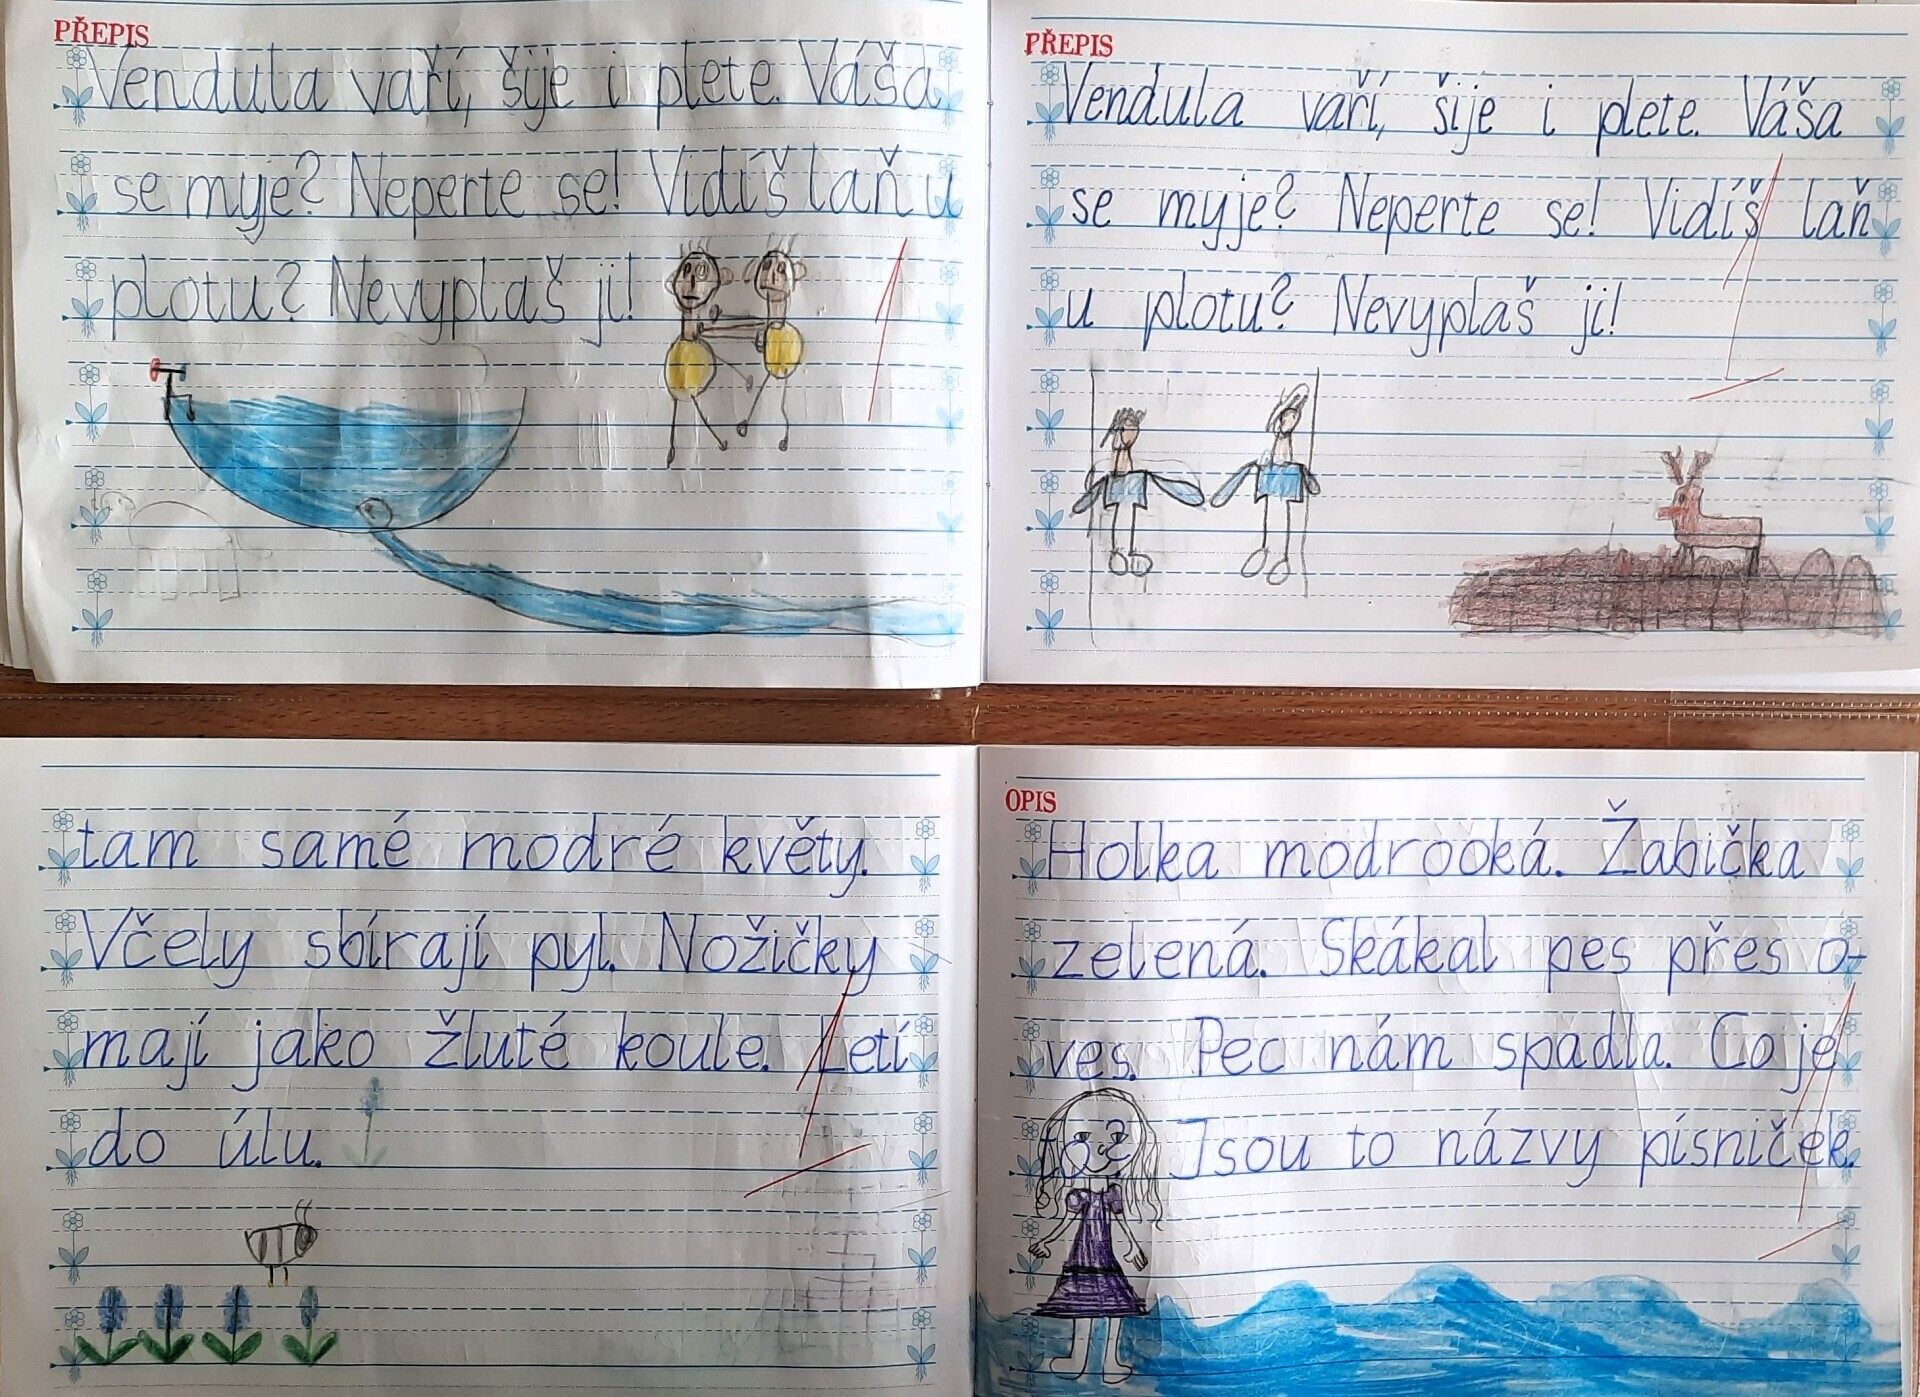 PŘEPIS
Vendula vaří, šije i plete. Váša
se myje? Neperte se! Vidíš laň u
plotu? Nevyplaš ji!
PŘEPIS
Vendula vaří, šije i plete. Váša
se myje? Neperte se! Vidíš laň
u plotu? Nevyplaš ji!
tam samé modré květy.
Včely sbírají pyl. Nožičky
mají jako žluté koule. Letí
do úlu.
OPIS
Holka modrooká. Žabička
zelená. Skákal pes přes o-
ves. Pec nám spadla. Co je
to? Jsou to názvy písniček.